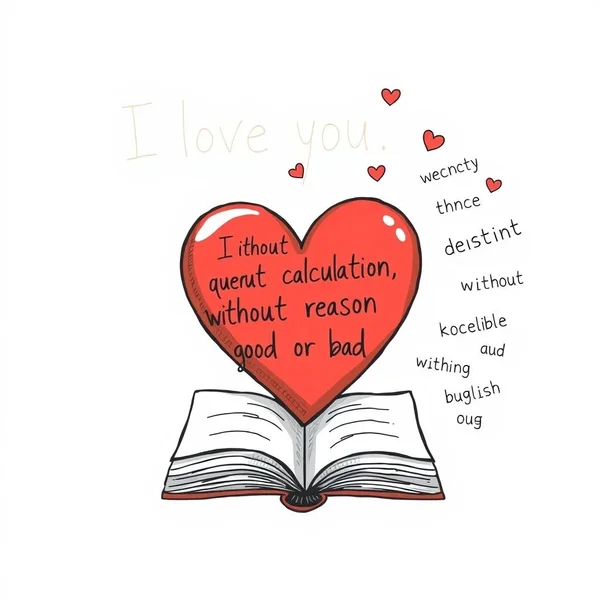 I love you.
I ithout
querut calculation,
without reason
good or bad
wecncty
thnce
deistint
without
kocelible
aud
withing
buglish
oug